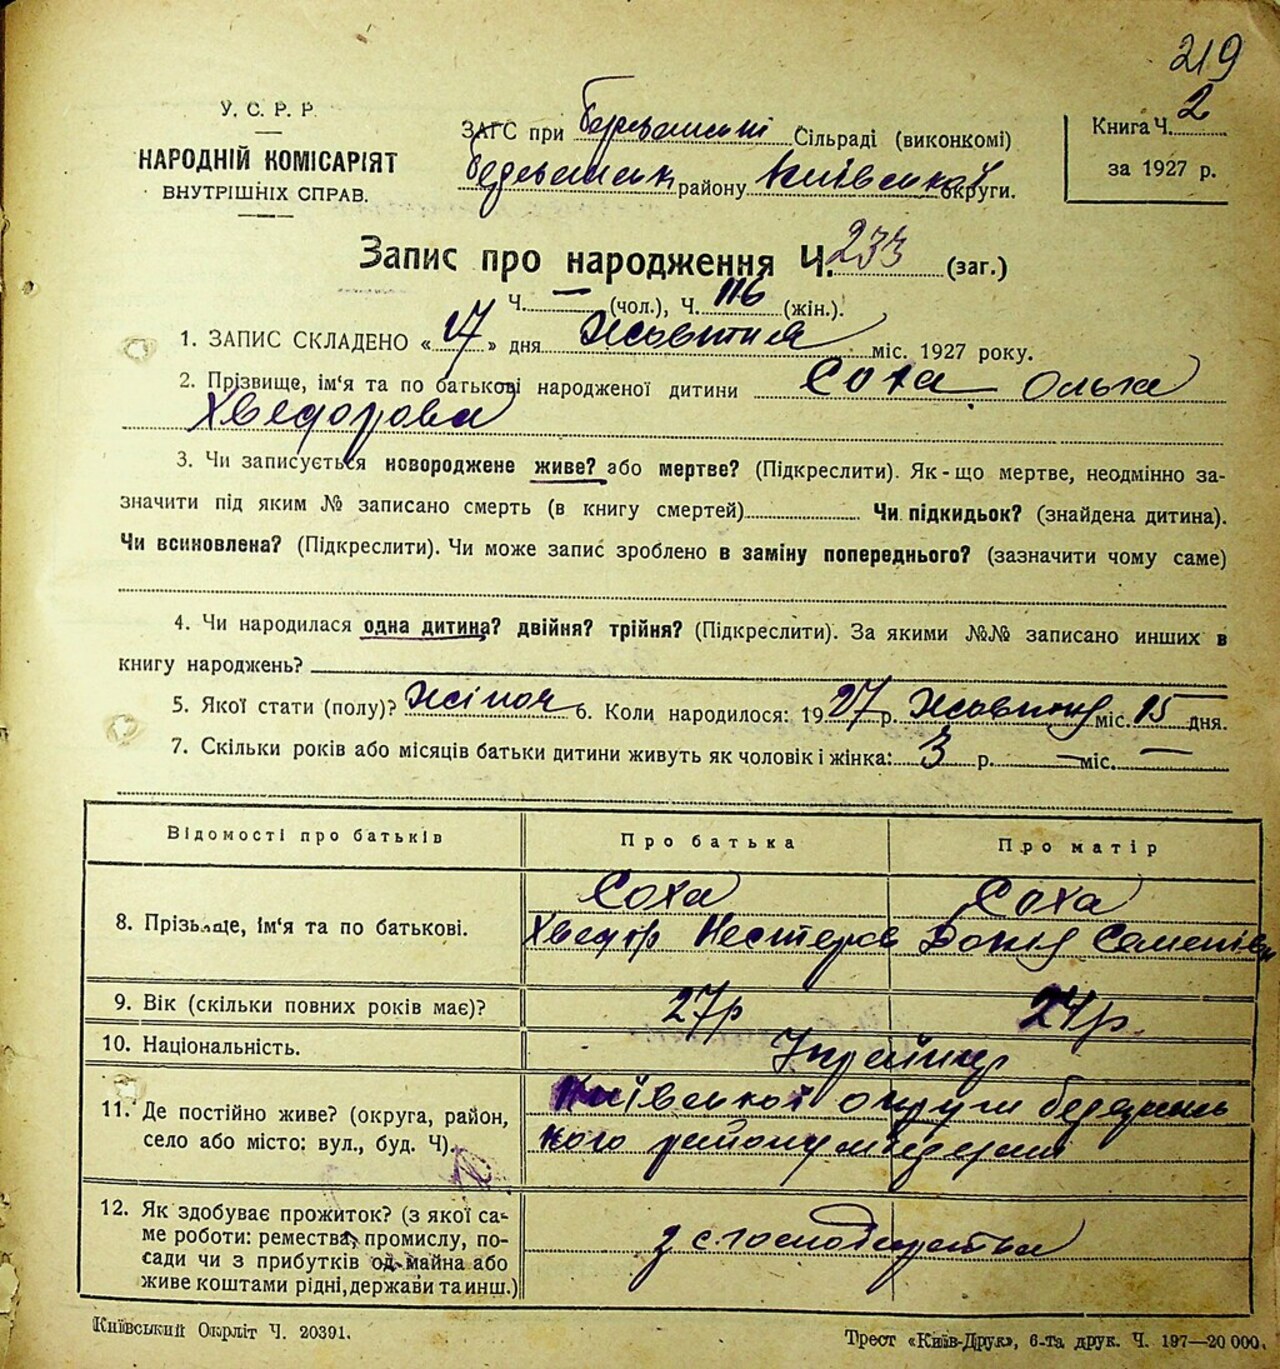 219
У. С. Р. Р.
НАРОДНІЙ КОМІСАРІЯТ
ВНУТРІШНІХ СПРАВ.
ЗАГС при Сільраді (виконкомі)
району Київської округи.
Книга Ч. 2
за 1927 р.
Запис про народження Ч. 233 (заг.)
Ч. — (чол.), Ч. 116 (жін.).
1. ЗАПИС СКЛАДЕНО « 17 » дня Жовтня міс. 1927 року.
2. Прізвище, ім'я та по батькові народженої дитини Соха Ольха
Хведорова
3. Чи записується новороджене живе? або мертве? (Підкреслити). Як-що мертве, неодмінно за-
значити під яким № записано смерть (в книгу смертей) Чи підкидьок? (знайдена дитина).
Чи всиновлена? (Підкреслити). Чи може запис зроблено в заміну попереднього? (зазначити чому саме)
4. Чи народилася одна дитина? двійня? трійня? (Підкреслити). За якими №№ записано инших в
книгу народжень?
5. Якої стати (полу)? Жіноч 6. Коли народилося: 1927 р. Жовтня міс. 15 дня.
7. Скільки років або місяців батьки дитини живуть як чоловік і жінка: 3 р. — міс. —
Відомості про батьків Про батька Про матір
Соха Соха
8. Прізвище, ім'я та по батькові. Хведір Нестеров Семенівн
9. Вік (скільки повних років має)? 27р 24р.
10. Національність. Українці
11. Де постійно живе? (округа, район, Київської округи
село або місто: вул., буд. Ч). кого району
12. Як здобуває прожиток? (з якої са-
ме роботи: ремества, промислу, по- з с. господарства
сади чи з прибутків од майна або
живе коштами рідні, держави та инш.)
Київський Окрліт Ч. 20391. Трест «Київ-Друк», 6-та друк. Ч. 197—20 000.